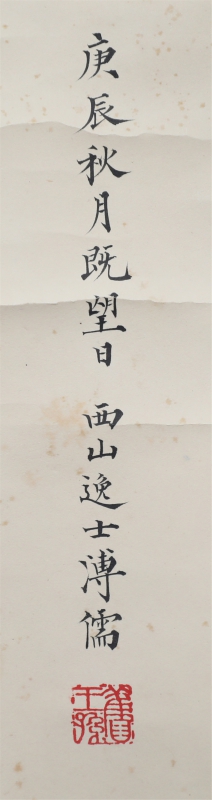 庚辰秋月既望日 西山逸士溥儒